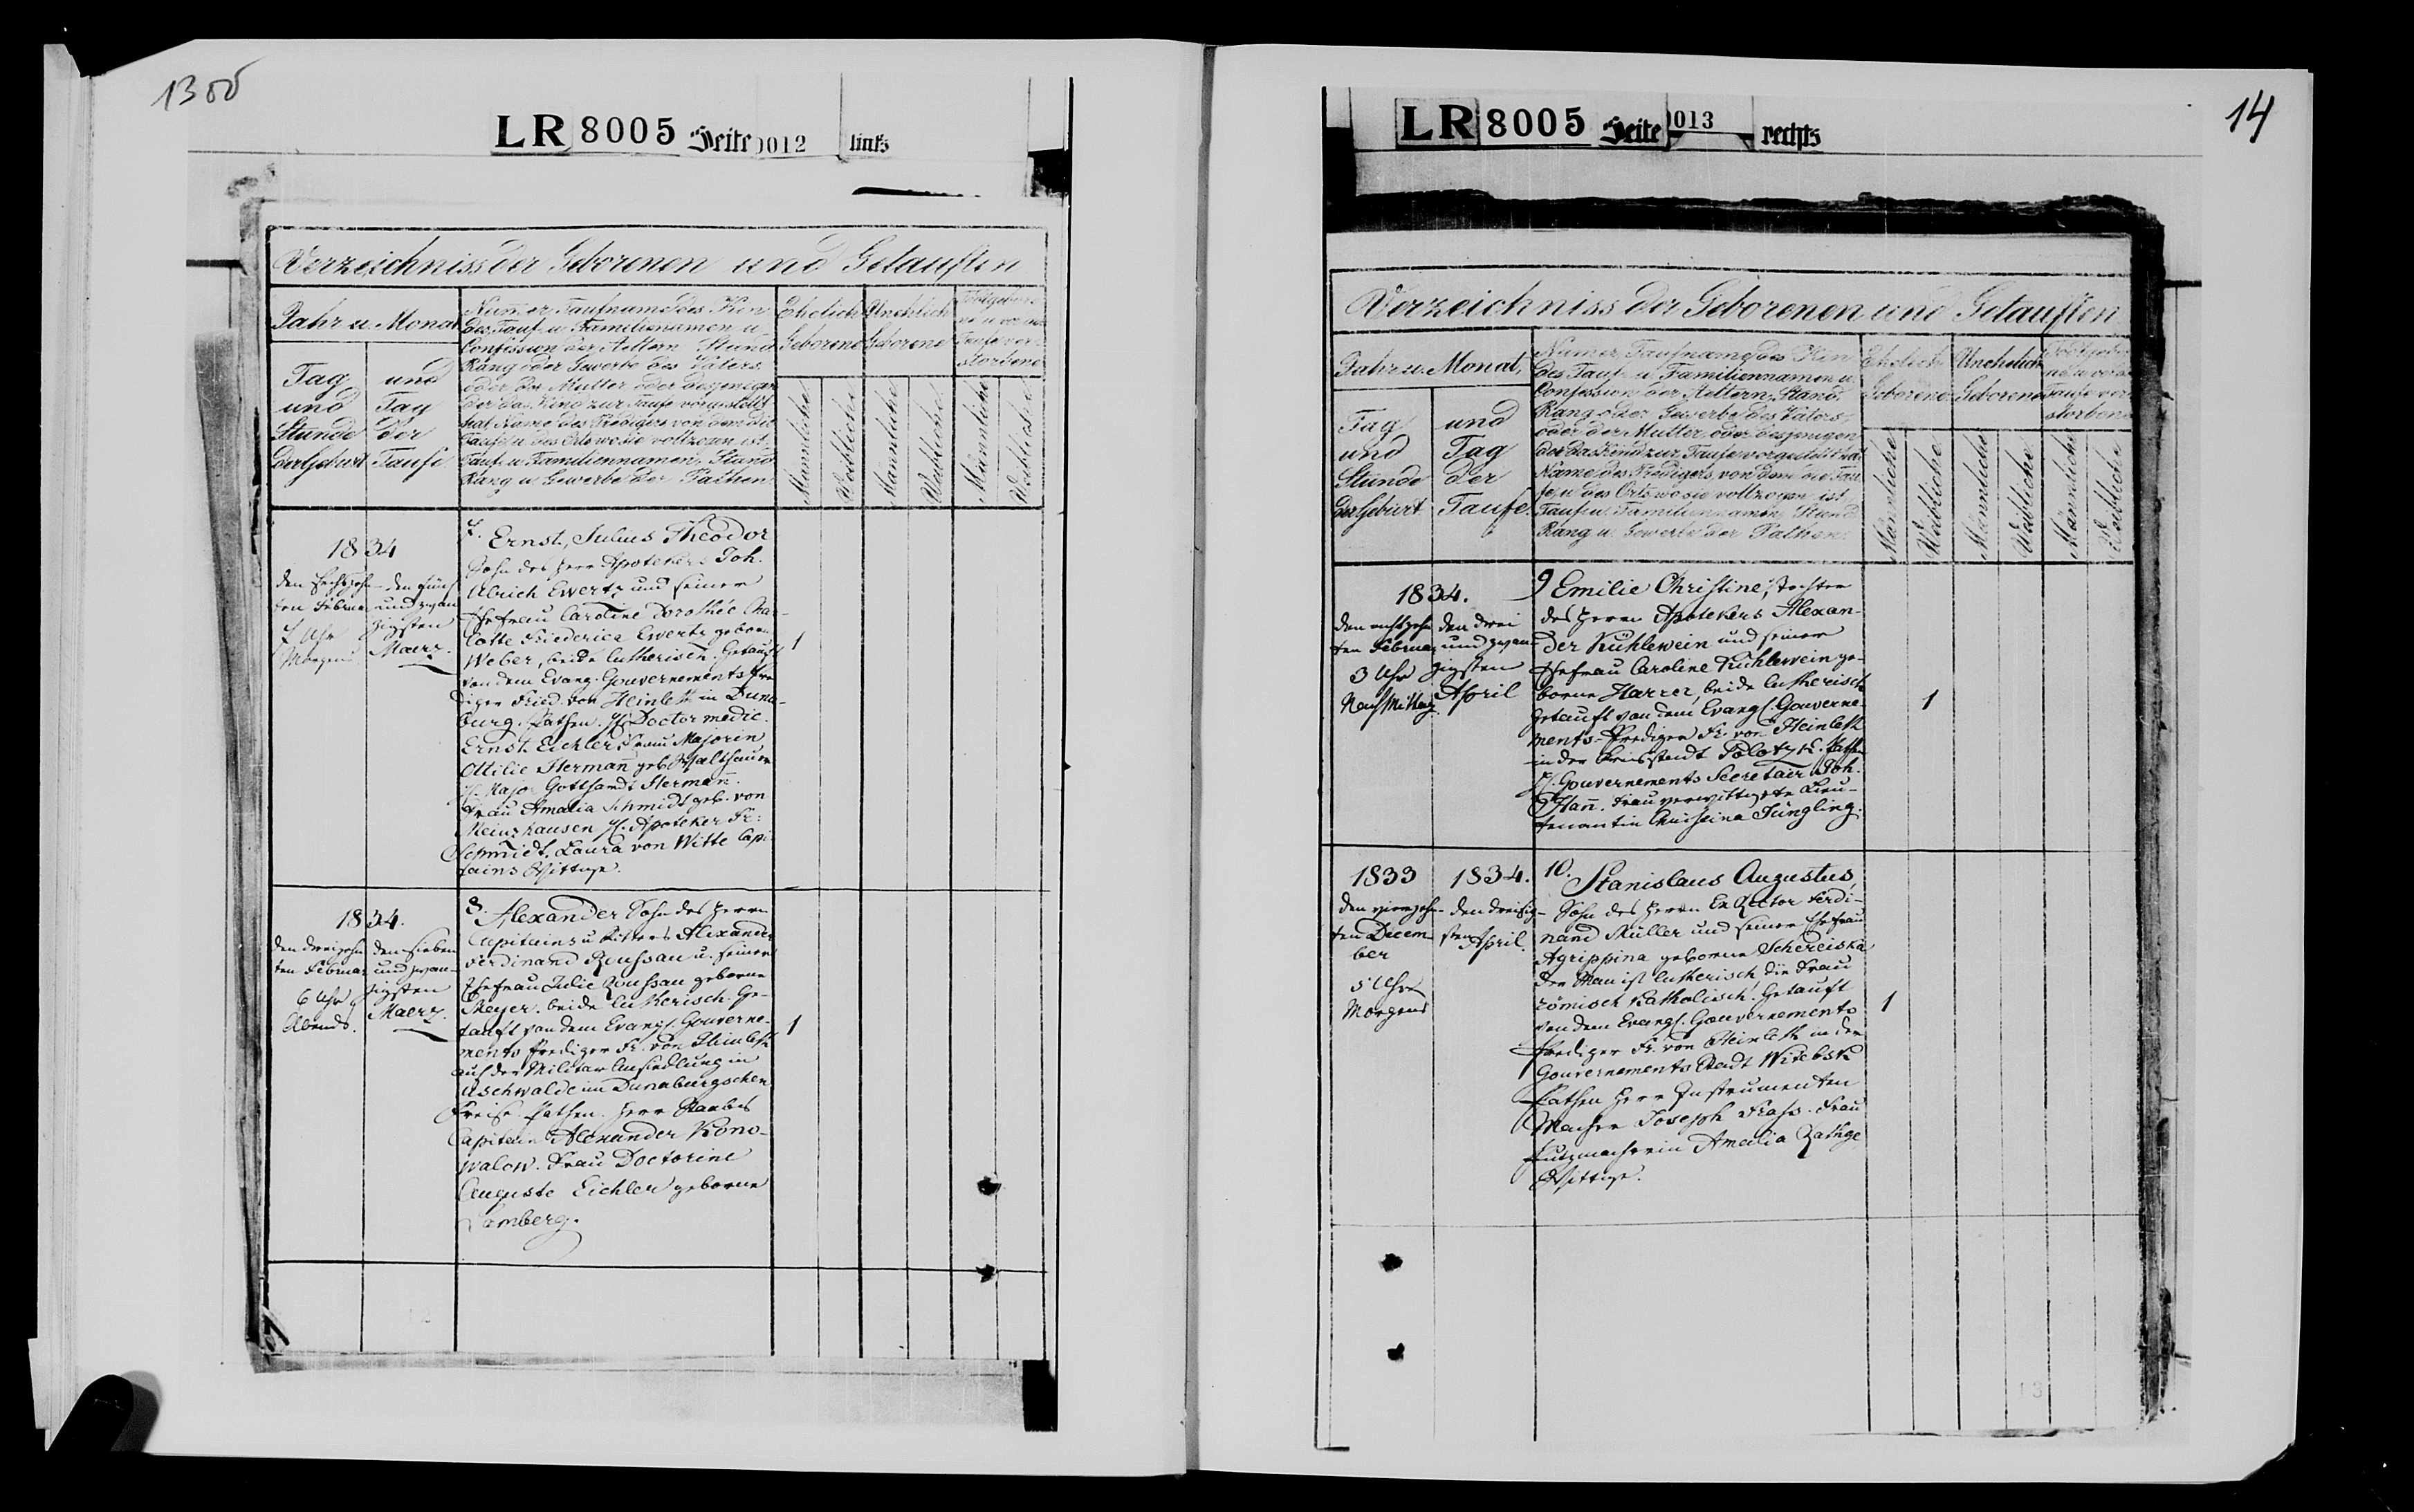 1300
LR 8005 Seite 0012 links
Verzeichniss der Geborenen und Getauften
Jahr u. Monat
Tag
und
Stunde
der Geburt
und
Tag
der
Taufe
Numer, Taufname des Kin
des Tauf- u. Familienamen u.
Confession der Aeltern Stand
Rang oder Gewerbe des Vaters
oder der Mutter oder desjenigen
der das Kind zur Taufe vorgestellt
hat Name des Predigers von dem die
Taufe u. des Orts wo sie vollzogen ist.
Tauf- u. Familiennamen, Stand
Rang u. Gewerbe der Pathen
Ehelich
Geborene
Unehelich
Geborene
Todtgebore
ne u. vor der
Taufe ver-
storbene
Mannliche
Weibliche
Mannliche
Weibliche
Mannliche
Weibliche
1834
den sechszehn-
ten Februar
7 Uhr
Morgens
den fünf
und zwan
zigsten
Maerz.
7. Ernst, Julius Theodor
Sohn des Herr Apotekers Joh.
Ulrich Ewertz und seiner
Ehefrau Caroline Dorothée Char-
lotte Friederica Ewertz geborn
Weber, beide lutherisch. Getauft
von dem Evang. Gouvernements Pre
diger Fried. von Heinleth in Duna-
burg. Pathen. H. Doctor medic.
Ernst Eichler, Frau Majorin
Ottilie Hermañ geb.
H. Major Gotthardt Hermañ.
Frau Amalia Schmidt geb. von
Meinzhausen H. Apoteker Fr:
Schmidt. Laura von Witte Capi-
tains Wittwe.
1
1834.
den dreizehn
ten Februar
6 Uhr
Abends.
den sieben
und zwan-
zigsten
Maerz.
8. Alexander Sohn des Herrn
Capitains u. Ritters Alexander
Ferdinand Roussau u. seiner
Ehefrau Julie Roussau geborne
Meyer. beide lutherisch. Ge-
tauft von dem Evangl. Gouverne-
ments Prediger Fr. von Heinleth
auf der Militär Ansiedlung in
Uschwalde im Dunaburgschen
Kreise. Pathen. Herr Staabs
Capitain Alexander Kono-
walow. Frau Doctorine
Auguste Eichler geborne
Lamberg.
1
14
LR 8005 Seite 0013 rechts
Verzeichniss der Geborenen und Getauften
Jahr u. Monat,
Tag
und
Stunde
der Geburt
und
Tag
der
Taufe.
Numer, Taufname des Kin
des Tauf- u. Familiennamen u.
Confession der Aeltern, Stand,
Rang oder Gewerbe des Vaters,
oder der Mutter, oder desjenigen
der das Kind zur Taufe vorgestellt hat
Name des Predigers, von dem die Tau
fe, u. des Orts wo sie vollzogen ist,
Tauf- u. Familiennamen, Stand
Rang u. Gewerbe der Pathen.
Ehelich
Geborene
Unehelich
Geborene
Todtgebore
ne u. vor der
Taufe ver-
storbene
Mannliche
Weibliche
Mannliche
Weibliche
Mannliche
Weibliche
1834.
den achtzehn
ten Februar
3 Uhr
Nach Mittag.
den drei
und zwan-
zigsten
April
9 Emilie Christine, Tochter
des Herrn Apotekers Alexan-
der Kühlewein und seiner
Ehefrau Caroline Kühlewein ge-
borne Harrer, beide lutherisch
getauft von dem Evangl. Gouverne-
ments-Prediger Fr. von Heinleth
in der Kreisstadt Polotzk. Pathen
H. Gouvernements Secretair Joh.
Hañ. Frau verwittwete Lieu-
tenantin Christina Jüngling.
1
1833
den vierzehn-
ten Decem-
ber
5 Uhr
Morgens
1834.
den dreisig-
sten April.
10. Stanislaus Augustus,
Sohn des Herrn Ex Rector Ferdi-
nand Müller und seiner Ehefrau
Agrippina geborne Schereiska
der Man ist lutherisch, die Frau
römisch Katholisch. Getauft
von dem Evangl. Gouvernements
Prediger Fr. von Heinleth in der
Gouvernements Stadt Witebsk
Pathen Herr Instrumenten
Macher Joseph Krass. Frau
Putzmacherin Amalia Rathge
Wittwe.
1
13